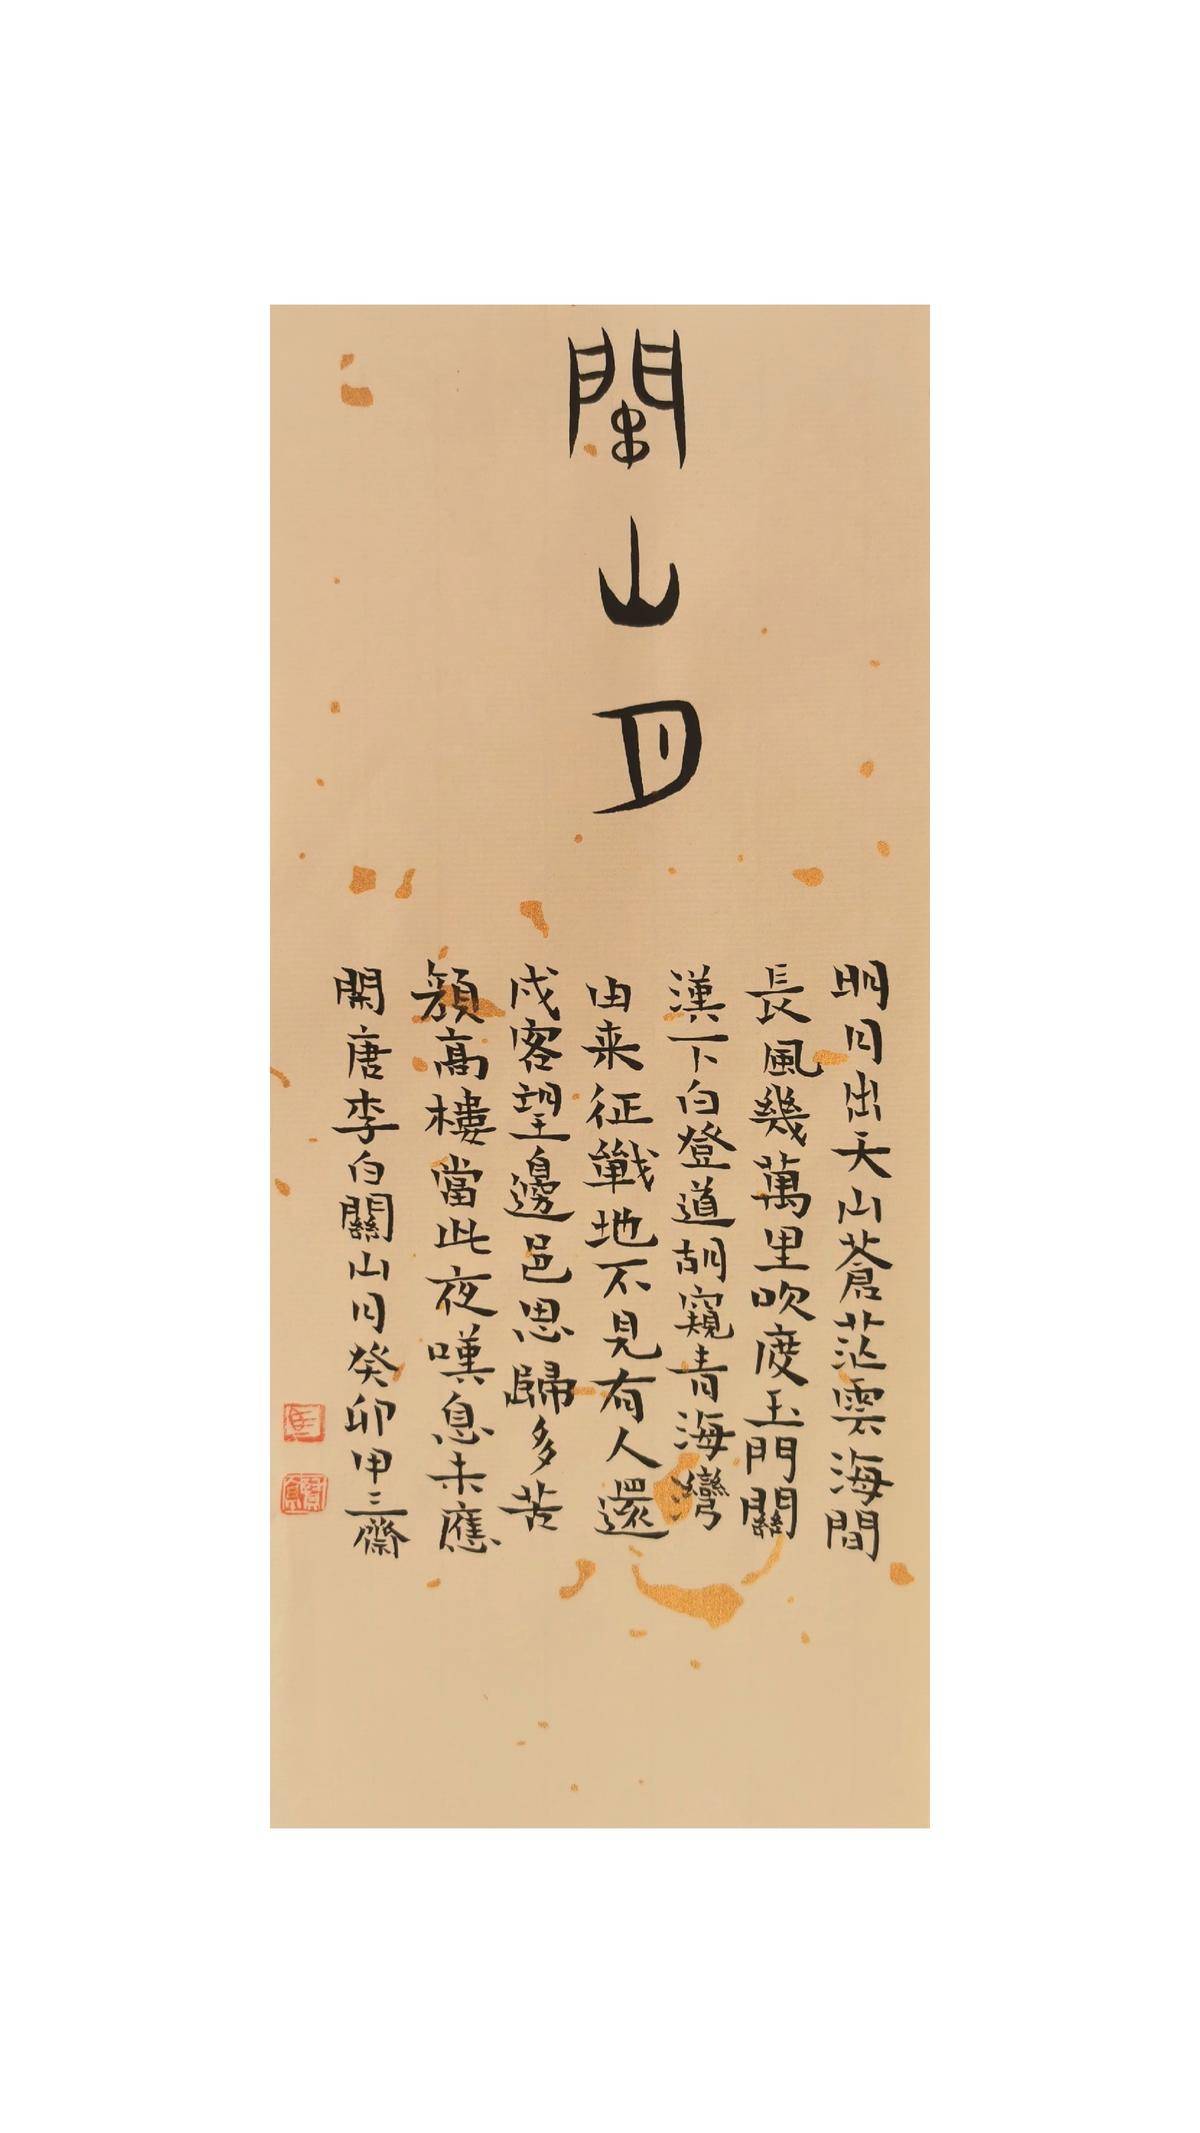 關山月
明月出天山蒼茫雲海間
長風幾萬里吹度玉門關
漢下白登道胡窺青海灣
由来征戰地不見有人還
戍客望邊邑思歸多苦
顏高樓當此夜嘆息未應
閑唐李白關山月癸卯甲三齋